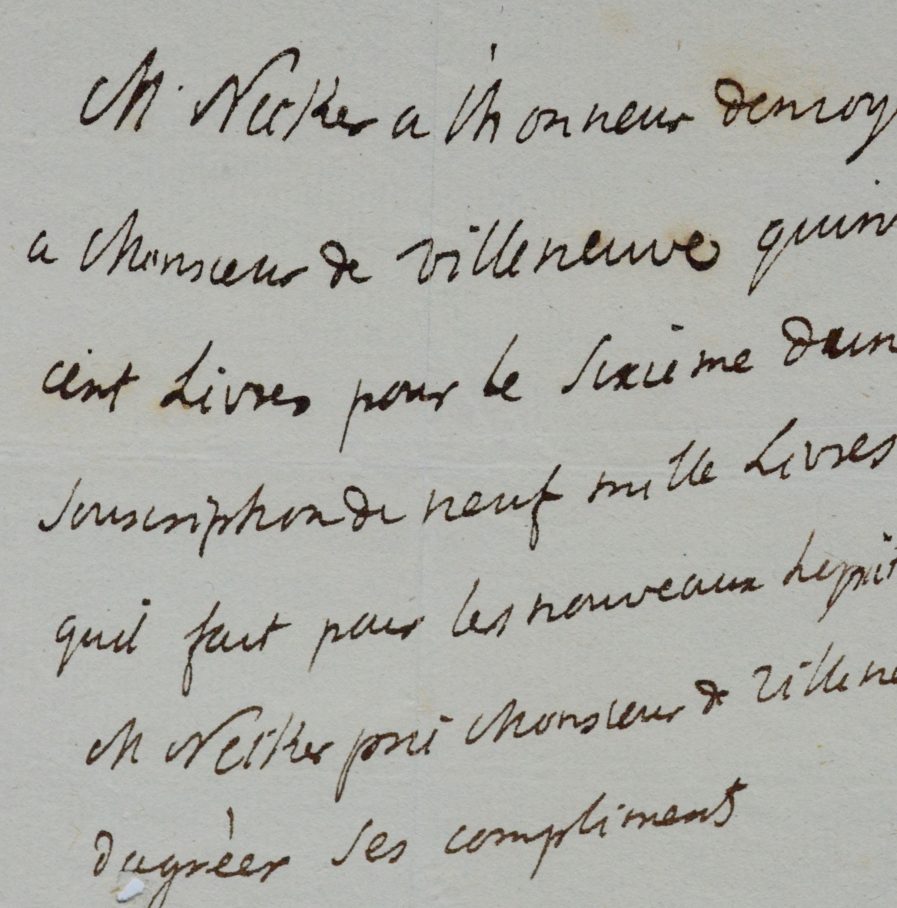 M. Necker a l'honneur denvoy
a Monsieur de Villeneuve quin
cent Livres pour le Sixieme dun
Souscription de neuf mille Livres
quil fait pour les nouveaux hopit
M Necker prie Monsieur de Villene
dagréer Ses compliments